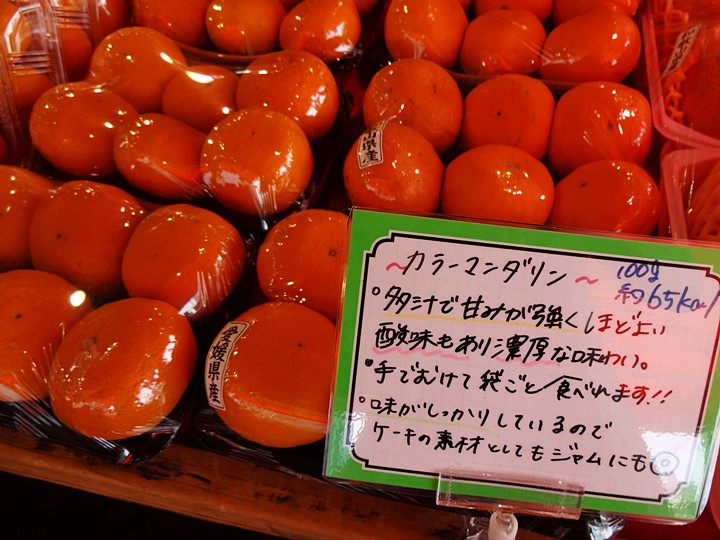 ～カラーマンダリン～
100g
約65kcal
・多汁で甘みが強くしほどよい
酸味もあり濃厚な味わい。
・手でむけて袋ごと食べれます!!
・味がしっかりしているので
ケーキの素材としてもジャムにも◎
愛媛県産
県産